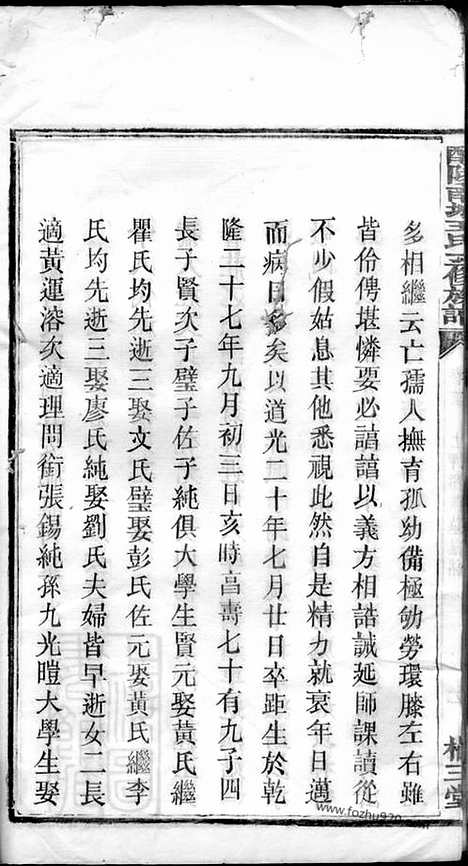 多相繼云亡孺人撫育孤幼備極劬勞環膝左右雖
皆伶俜堪憐要必諄諄以義方相誥誡延師課讀從
不少假姑息其他悉視此然自是精力就衰年日邁
而病日多矣以道光二十年七月廿日卒距生於乾
隆二十七年九月初三日亥時享壽七十有九子四
長子賢次子璧子佐子純俱大學生賢元娶黃氏繼
瞿氏均先逝三娶文氏璧娶彭氏佐元娶黃氏繼李
氏均先逝三娶廖氏純娶劉氏夫婦皆早逝女二長
適黃運溶次適理問銜張錫純孫九光暟大學生娶
三堂
www.fozhu920.com